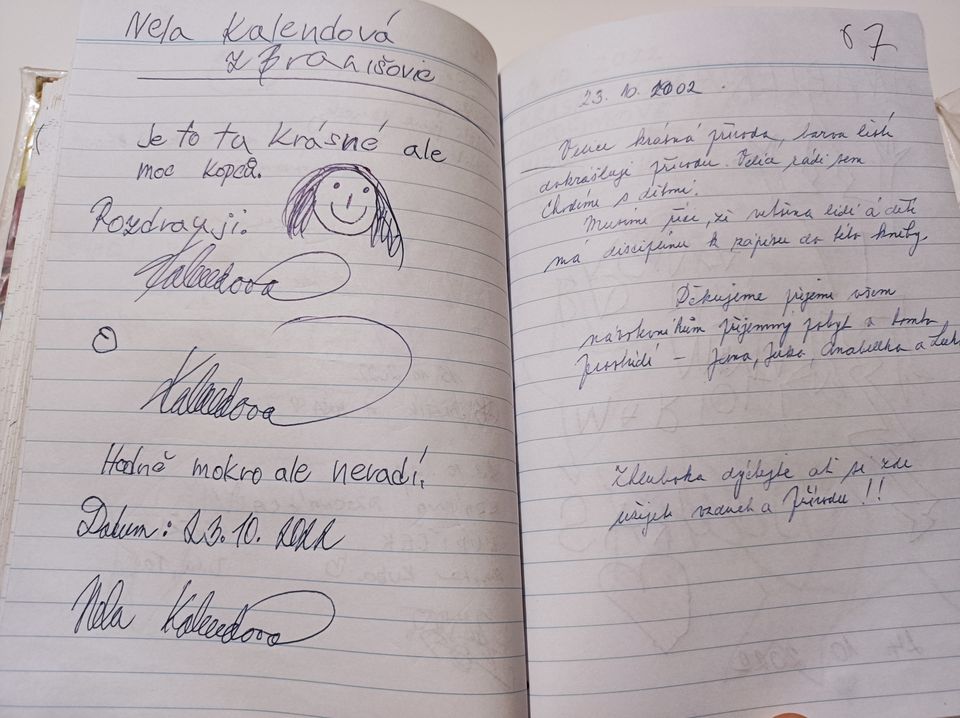 Nela Kalendová
z Branišovic
Je to tu krásné ale
moc kopců.
Pozdravuji.
Kalendova
Kalendova
Hodně mokro ale nevadí.
Datum: 23.10. 2022
Nela Kalendova
67
23. 10. 2002.
Velice krásná příroda, barva listí
dokrášluje přírodu. Velia rádi sem
chodíme s dětmi.
Musíme říci, že většina lidí a dětí
má disciplínu k zápisu do této knihy
Děkujeme přejeme všem
návštěvníkům příjemný pobyt a
prostředí – Jana, Anabellka a
Zhluboka dýchejte ať si zde
užijete vzduch a přírodu!!